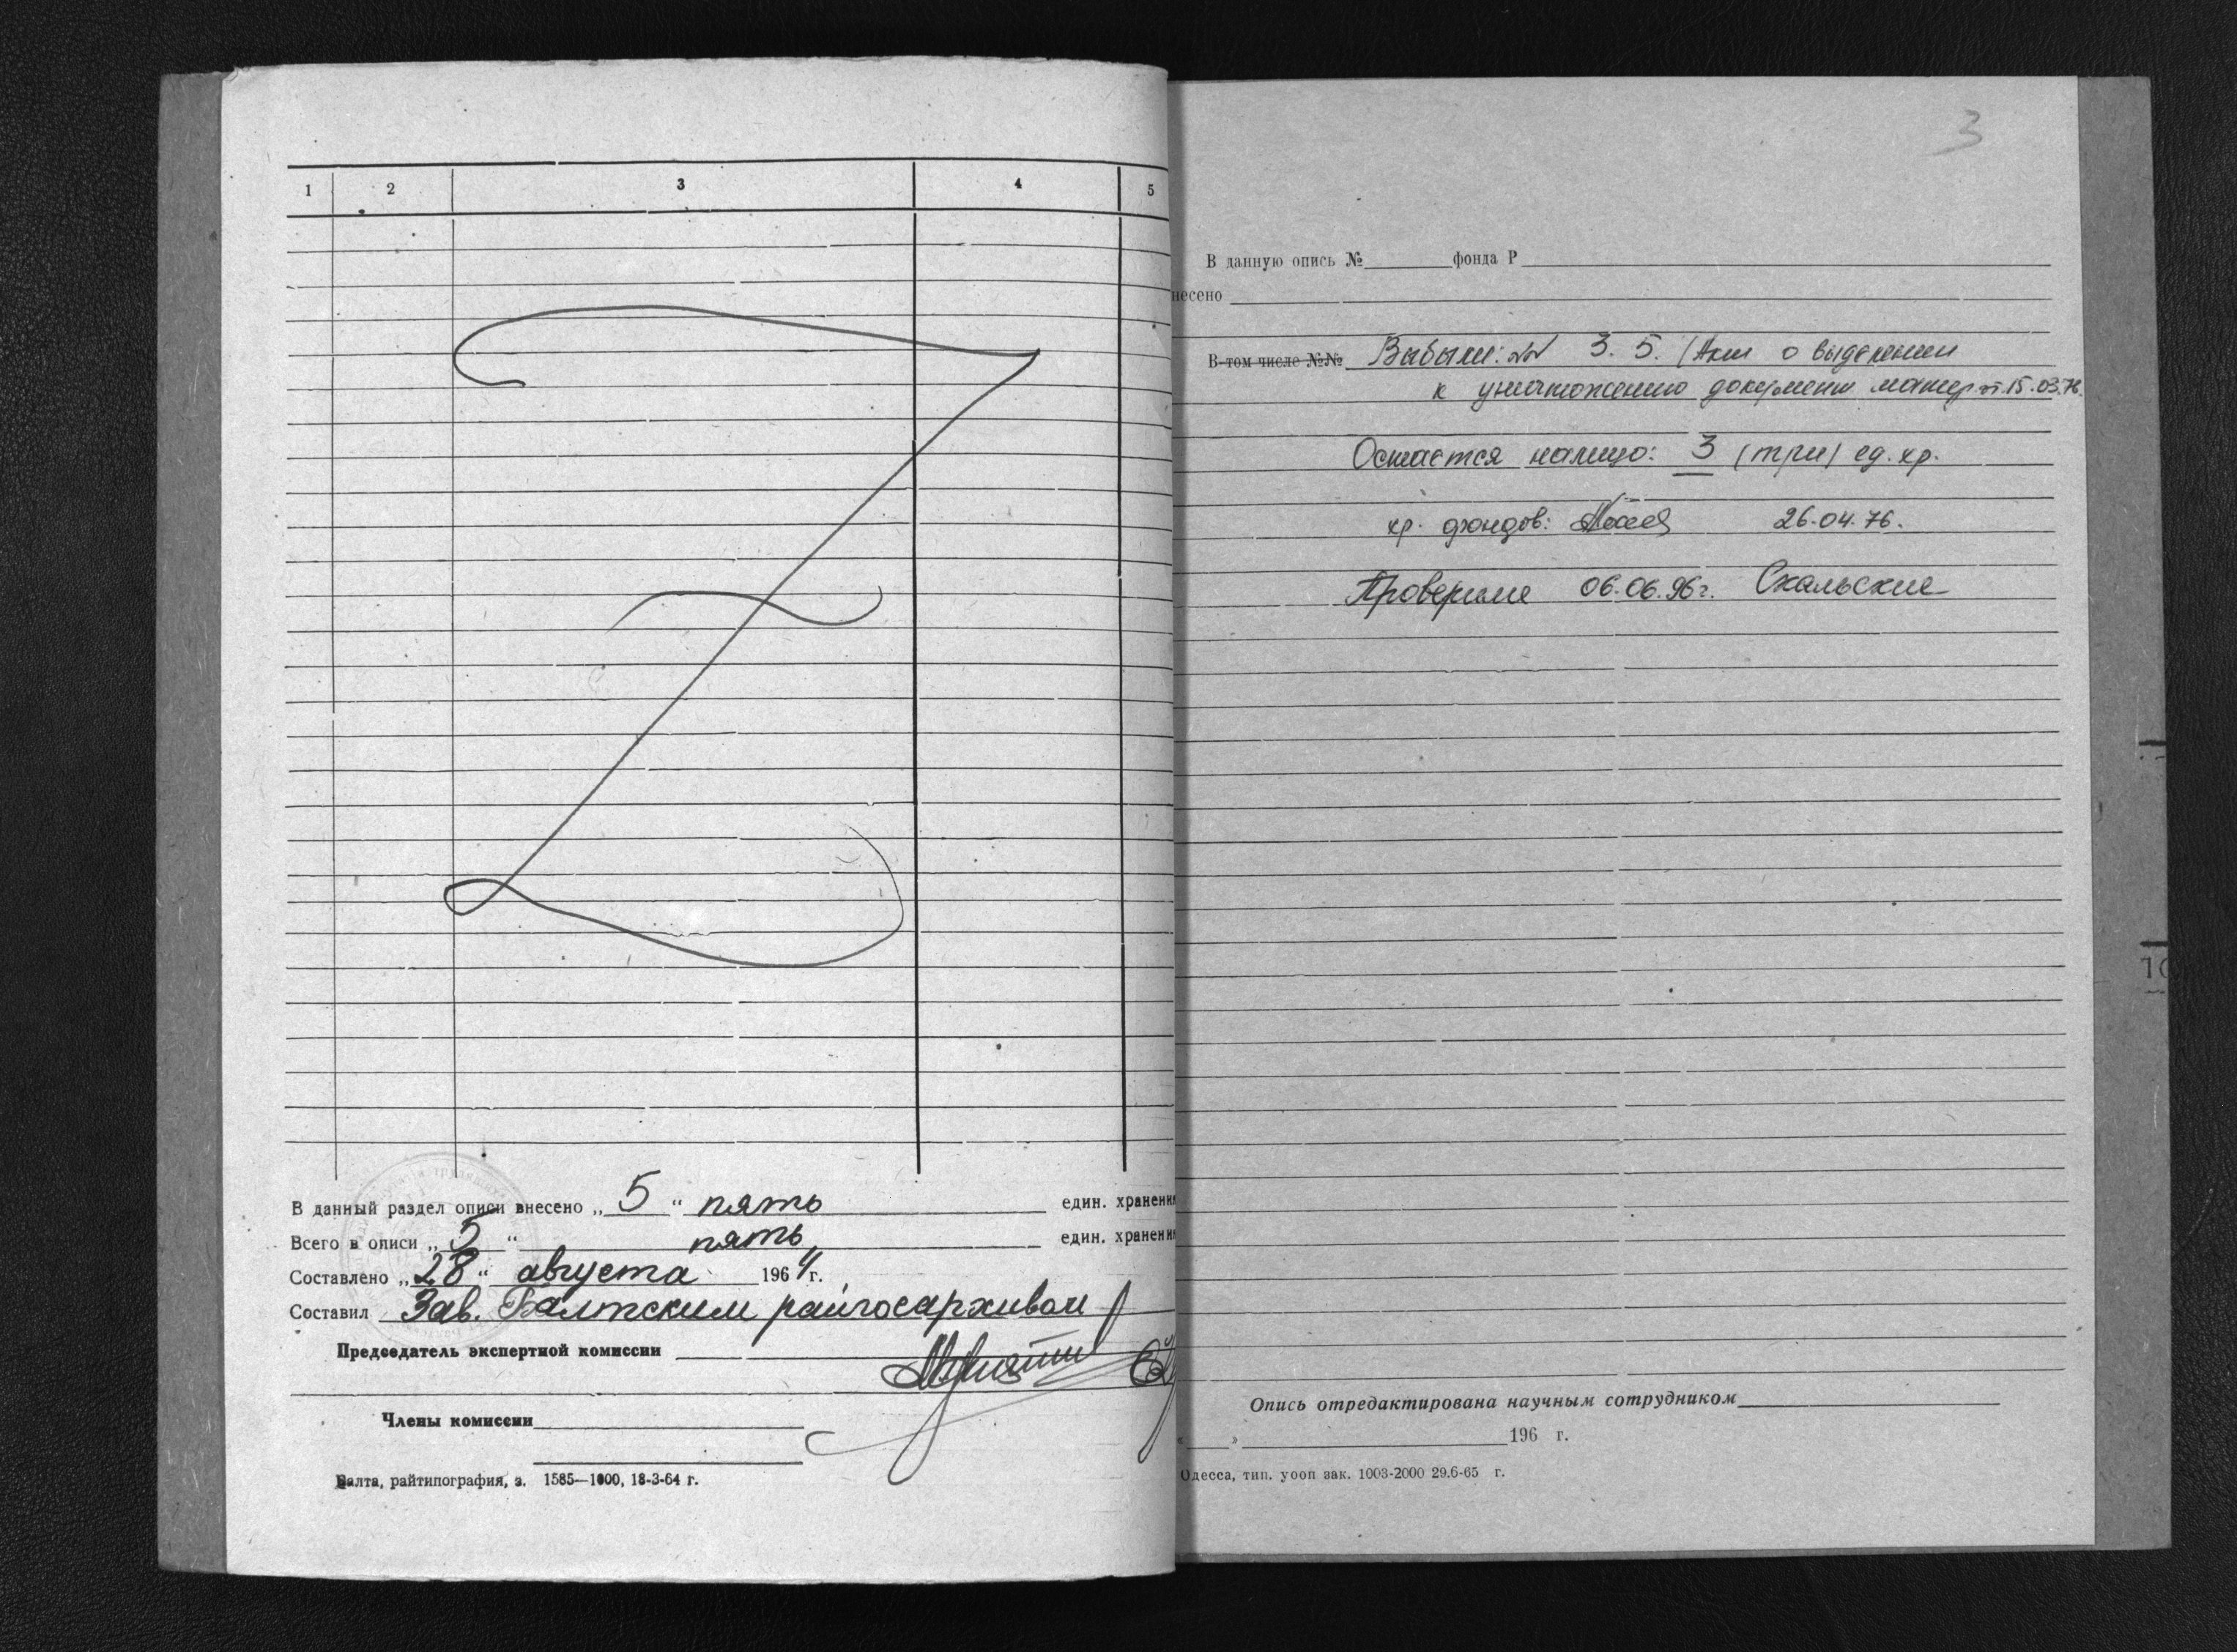 1 2 3 4 5
В данный раздел описи внесено „ 5 “ пять един. хранения
Всего в описи „ 5 “ пять един. хранени
Составлено „ 28 “ августа 1964 г.
Составил Зав. Балтским райгосархивом
Председатель экспертной комиссии
Члены комиссии
Балта, райтипография, з. 1585—1000, 18-3-64 г.
3
В данную опись № фонда Р
несено
В том числе №№ Выбыли: №№ 3. 5. (Акт о выделении
к уничтожению документ матер. от 15.03.76.
Остается налицо: 3 (три) ед. хр.
хр. фондов: 26.04.76.
Проверила 06.06.96г.
Опись отредактирована научным сотрудником
« » 196 г.
Одесса, тип. уооп зак. 1003-2000 29.6-65 г.
10